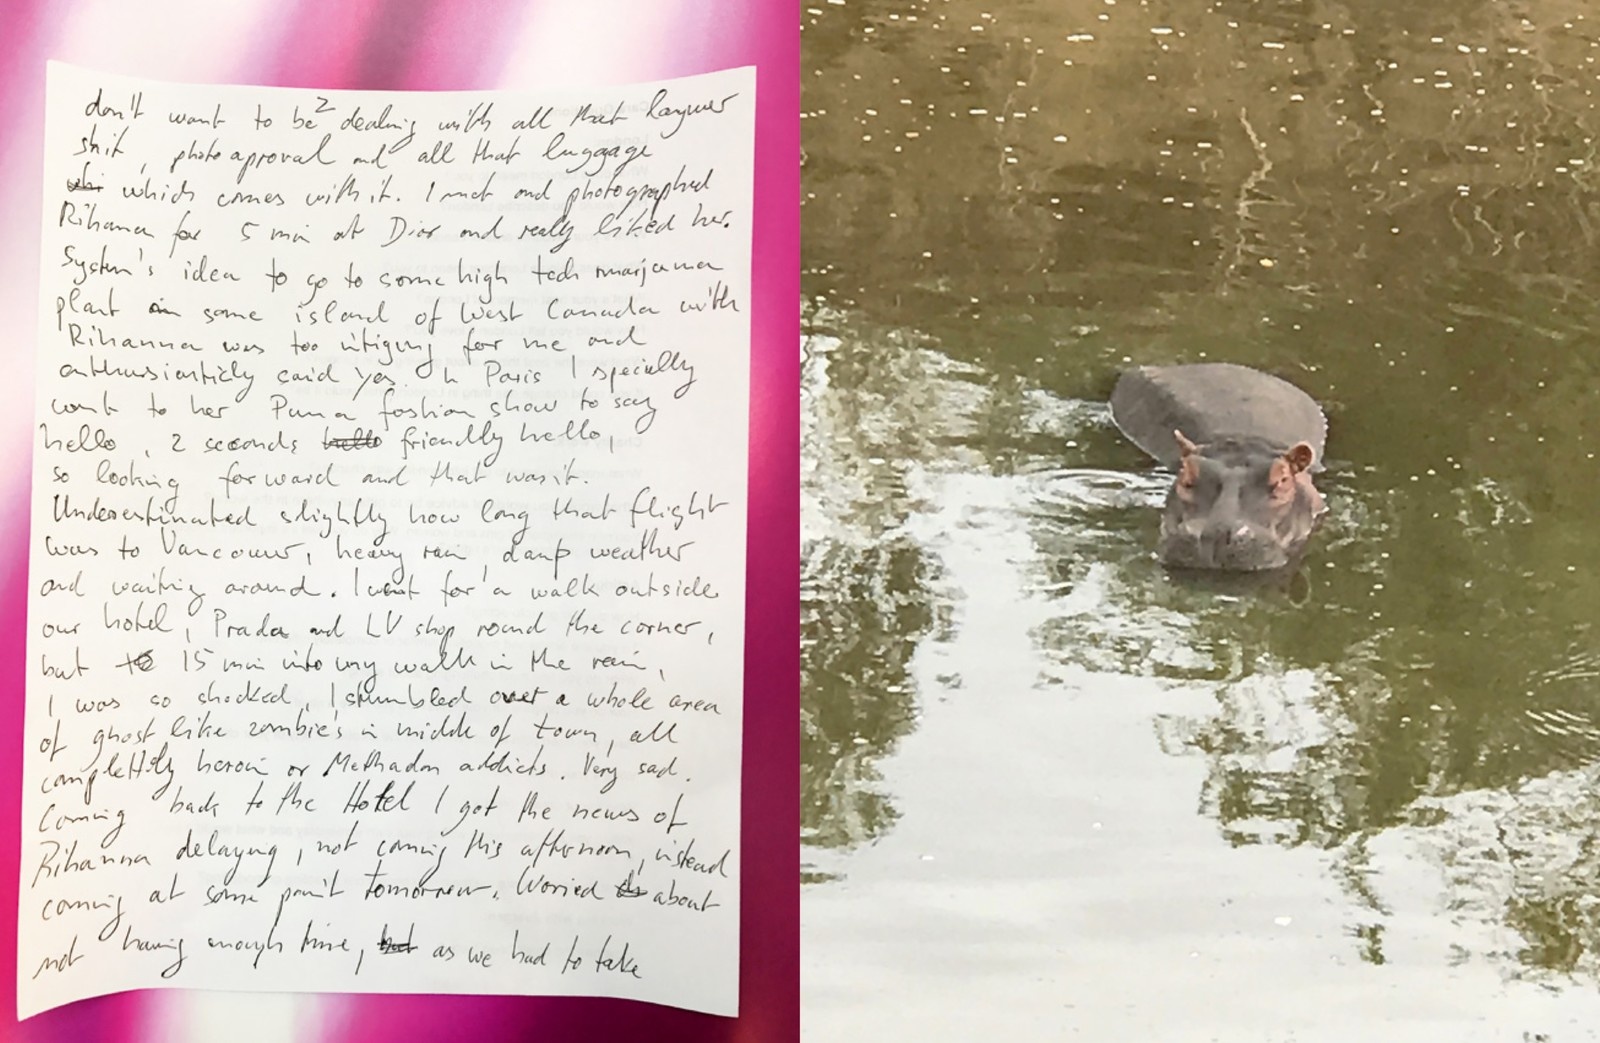 2
don't want to be dealing with all that lawyer
shit, photo aproval and all that luggage
which comes with it. I met and photographed
Rihanna for 5 min at Dior and really liked her.
System's idea to go to some high tech marjuana
plant in some island of West Canada with
Rihanna was too intiguing for me and
enthusiasticly said yes. In Paris I specially
went to her Puma fashion show to say
hello, 2 seconds hello friendly hello,
so looking forward and that was it.
Underestimated slightly how long that flight
was to Vancouver, heavy rain, damp weather
and waiting around. I went for a walk outside
our hotel, Prada and LV shop round the corner,
but to 15 min into my walk in the rain,
I was so shocked, I stumbled over a whole area
of ghost like zombie's in middle of town, all
complettly heroin or Methadon addicts. Very sad.
Coming back to the Hotel I got the news of
Rihanna delaying, not coming this afternoon, instead
coming at some point tomorrow. Worried about
not having enough time, but as we had to take